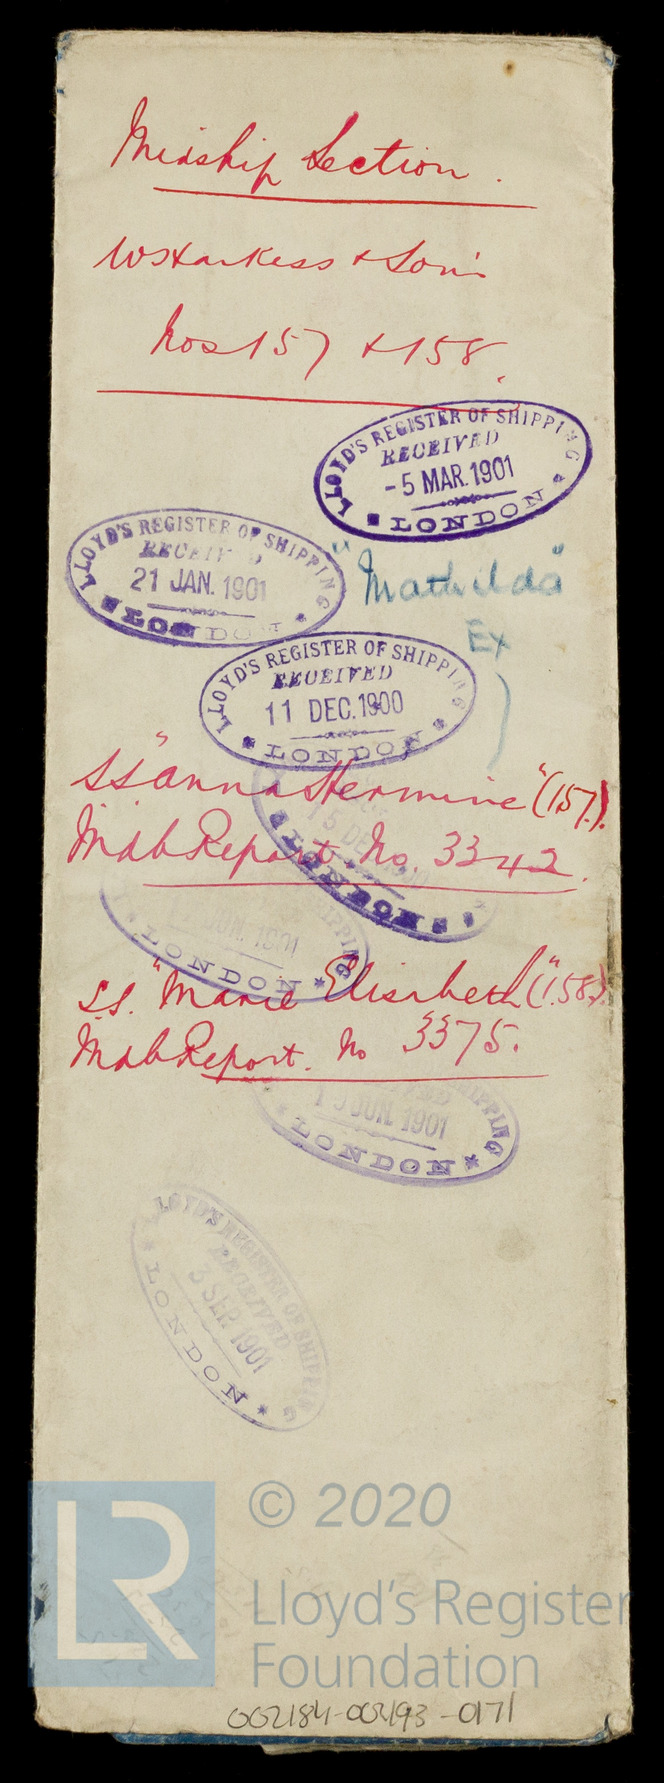 Midship Section.
W. Harkess & Son's
Nos 157 & 158.
LLOYD'S REGISTER OF SHIPPING
RECEIVED
-5 MAR.1901
LONDON
LLOYD'S REGISTER OF SHIPPING
RECEIVED
21 JAN. 1901
LONDON
"Mathilda"
Ex
LLOYD'S REGISTER OF SHIPPING
RECEIVED
11 DEC.1900
LONDON
SS "Anna Hermine" (157).
Mdb Report. No. 3342.
LONDON
JUN. 1901
LONDON
ss. "Marie Elisabeth" (158).
Mdb Report. No 3375.
JUN. 1901
LONDON
LLOYD'S REGISTER OF SHIPPING
RECEIVED
3 SEP. 1901
LONDON
LR
© 2020
Lloyd's Register
Foundation
002184-002193-0171